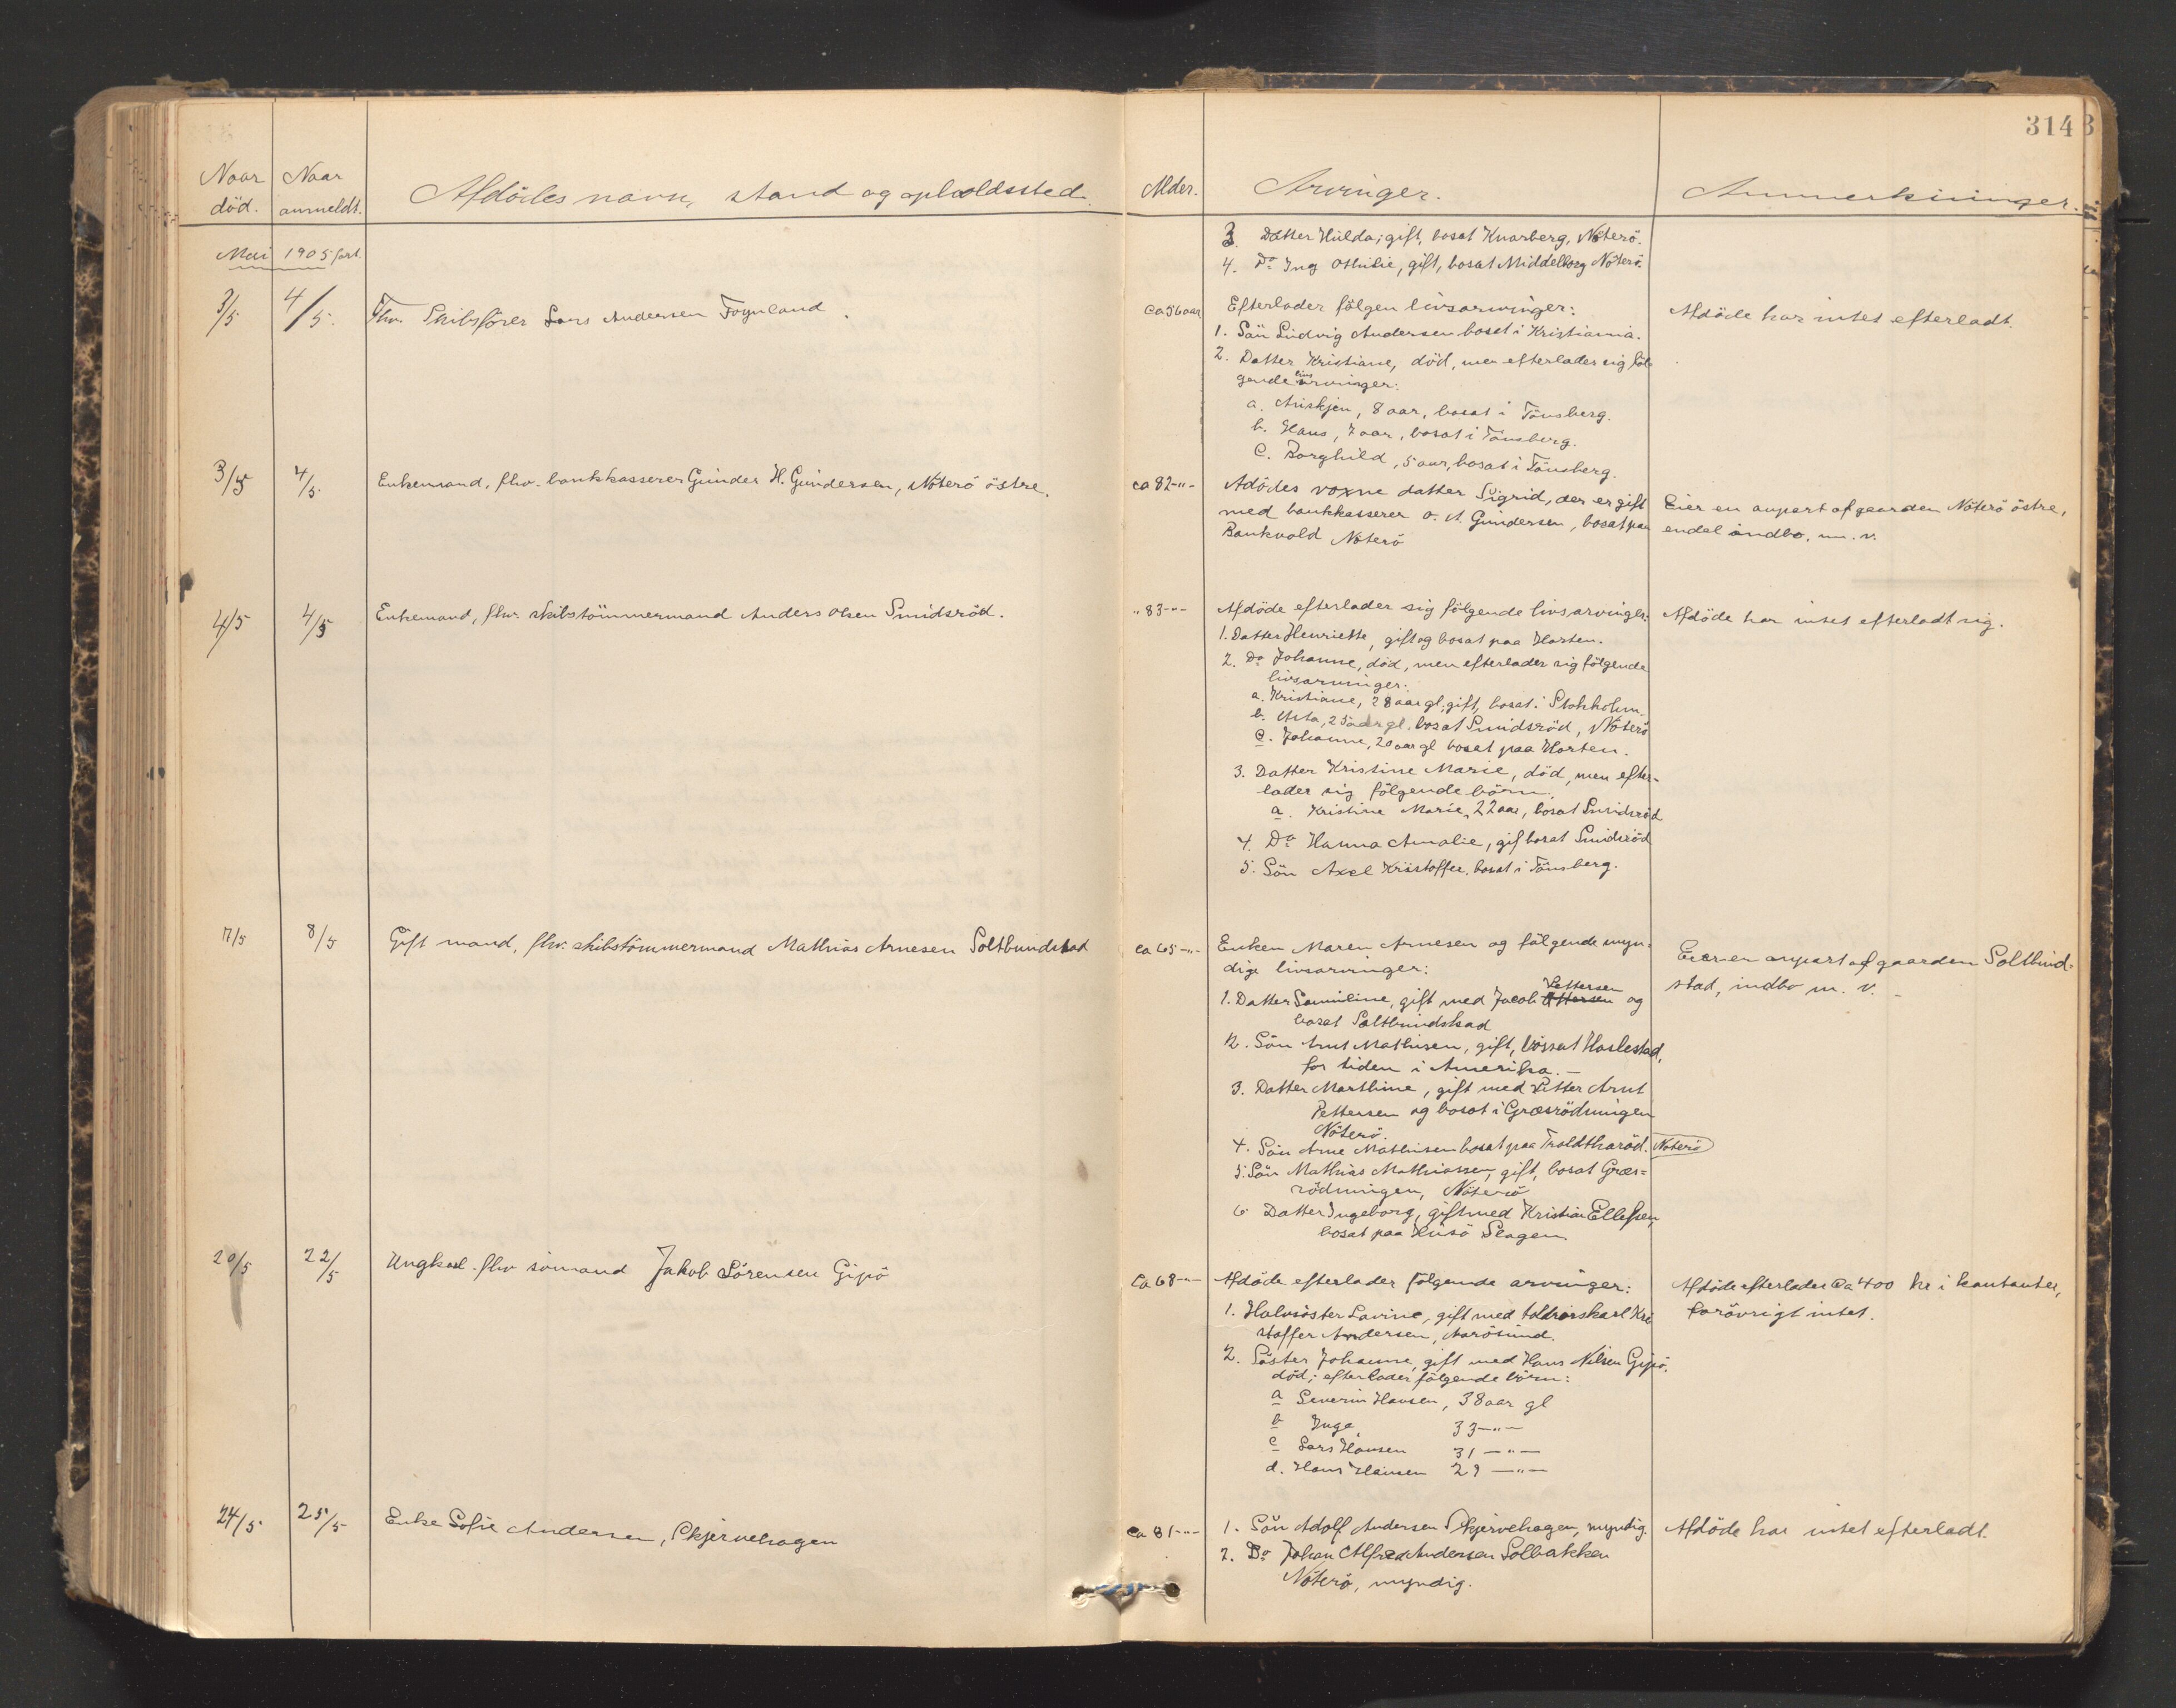 314
Naar død.
Naar anmeldt.
Afdödes navn, stand og opholdssted.
Alder.
Arvinger.
Anmerkninger.
Mai 1905 fort.
3. Datter Hulda, gift, bosat Knarberg, Nöterö.
4. Do Ing Othilie, gift, bosat Middelborg Nöterö.
3/5
4/5.
Fhv. Skibsfører Lars Andersen Föynland.
ca 56 aar
Efterlader fölgen livsarvinger:
1. Sön Ludvig Andersen bosat i Kristiania.
2. Datter Kristiane, död, men efterlader sig föl-
gende livsarvinger:
a. Ariskjen, 8 aar, bosat i Tönsberg.
b. Hans, 7 aar, bosat i Tönsberg.
c. Borghild, 5 aar, bosat i Tönsberg.
Afdöde har intet efterladt.
3/5
4/5
Enkemand, fhv. bankkasserer Gunder H. Gundersen, Nöterö östre.
ca 82 -"-
Adödes voxne datter Sigrid, der er gift
med bankkasserer O. A. Gundersen, bosat paa
Bankvold Nöterö
Eier en anpart af gaarden Nöterö östre,
endel indbo, m. v.
4/5
4/5
Enkemand, fhv. skibstömmermand Anders Olsen Smidsröd.
" 83 -"-
Afdöde efterlader sig fölgende livsarvinger:
1. Datter Henriette, gift og bosat paa Horten.
2. Do Johanne, död, men efterlader sig fölgende
livsarvinger:
a. Kristiane, 28 aar gl, gift, bosat i Stokholm.
b. Asta, 25 aar gl. bosat Smidsröd, Nöterö
c. Johanne, 20 aar gl bosat paa Horten.
3. Datter Kristine Marie, död, men efter-
lader sig fölgende börn.
a. Kristine Marie, 22 aar, bosat Smidsröd
4. Do Hanna Amalie, gif bosat Smidsröd
5. Sön Axel Kristoffer, bosat i Tönsberg.
Afdöde har intet efterladt sig.
7/5
8/5
Gift mand, fhv. skibstömmermand Mathias Arnesen Soltbundstad
ca 65 -"-
Enken Maren Arnesen og fölgende myn-
dige livsarvinger:
1. Datter Samiline, gift med Jacob Pettersen og
bosat Soltbundstad
2. Sön Arnt Mathisen, gift, bosat Haslestad,
for tiden i Amerika. -
3. Datter Marthine, gift med Petter Arnt
Pettersen og bosat i Græsrödningen
Nöterö.
4. Sön Arne Mathisen bosat paa Troldtharöd. Nöterö
5. Sön Mathias Mathiassen, gift, bosat Græs-
rödningen, Nöterö
6 Datter Ingeborg, gift med Kristian Ellefsen
bosat paa Husö Slagen
Eier en anpart af gaarden Soltbund-
stad, indbo m. v. -
20/5
22/5
Ungkarl fhv sömand Jakob Sörensen Gipö
Ca 68 -"-
Afdöde efterlader fölgende arvinger:
1. Halvsöster Lavine, gift med toldrorskarl Kri
stoffer Andersen, Aarösund.
2. Söster Johanne, gift med Hans Nilsen Gipö.
död; efterlader fölgende börn:
a Severin Hansen, 38 aar gl
b Inga 33 -"-
c Lars Hansen 31 -"-
d. Hans Hansen 29 -"-
Afdöde efterlader Ca 400 kr i kontanter,
forövrigt intet.
24/5
25/5
Enke Sofie Andersen, Skjervehagen
ca 81 -"-
1. Sön Adolf Andersen Skjervehagen, myndig.
2. Do Johan Alfred Andersen Solbakken
Nöterö, myndig.
Afdöde har intet efterladt.